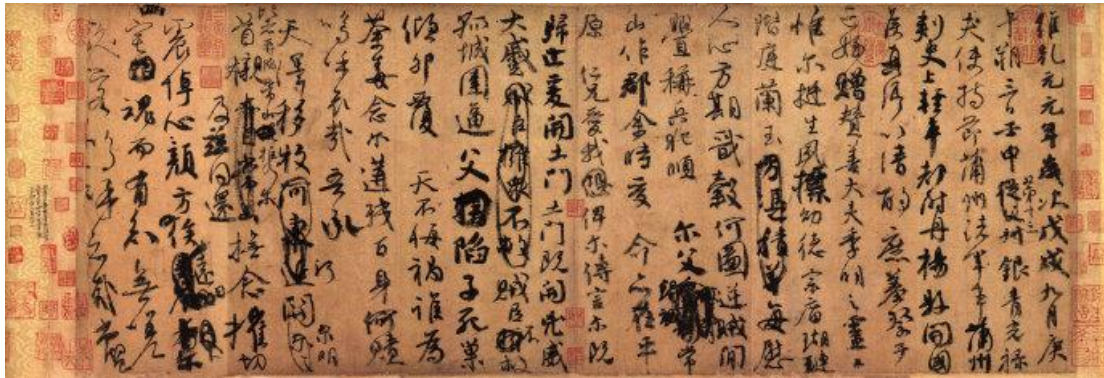 維乾元元年歲次戊戌九月庚
午朔三日壬申第十三叔銀青光祿
夫使持節蒲州諸軍事蒲州
刺史上輕車都尉丹楊縣開國
侯真卿以清酌庶羞祭于
亡姪贈贊善大夫季明之靈曰
惟爾挺生夙標幼德宗廟瑚璉
階庭蘭玉方憑積善每慰
人心方期戩穀何圖逆賊閒
釁稱兵犯順爾父竭誠常
山作郡余時受命亦在平
原仁兄愛我俾爾傳言爾既
歸止爰開土門土門既開凶威
大蹙賊臣擁眾不救賊臣不救
孤城圍逼父陷子死巢
傾卵覆天不悔禍誰為
荼毒念爾遘殘百身何贖
嗚乎哀哉吾承
天澤移牧河關爾明
比者再陷常山攜爾
首櫬及茲同還撫念摧切
震悼心顏方俟遠日
爾幽宅魂而有知無嗟
久客嗚呼哀哉尚饗